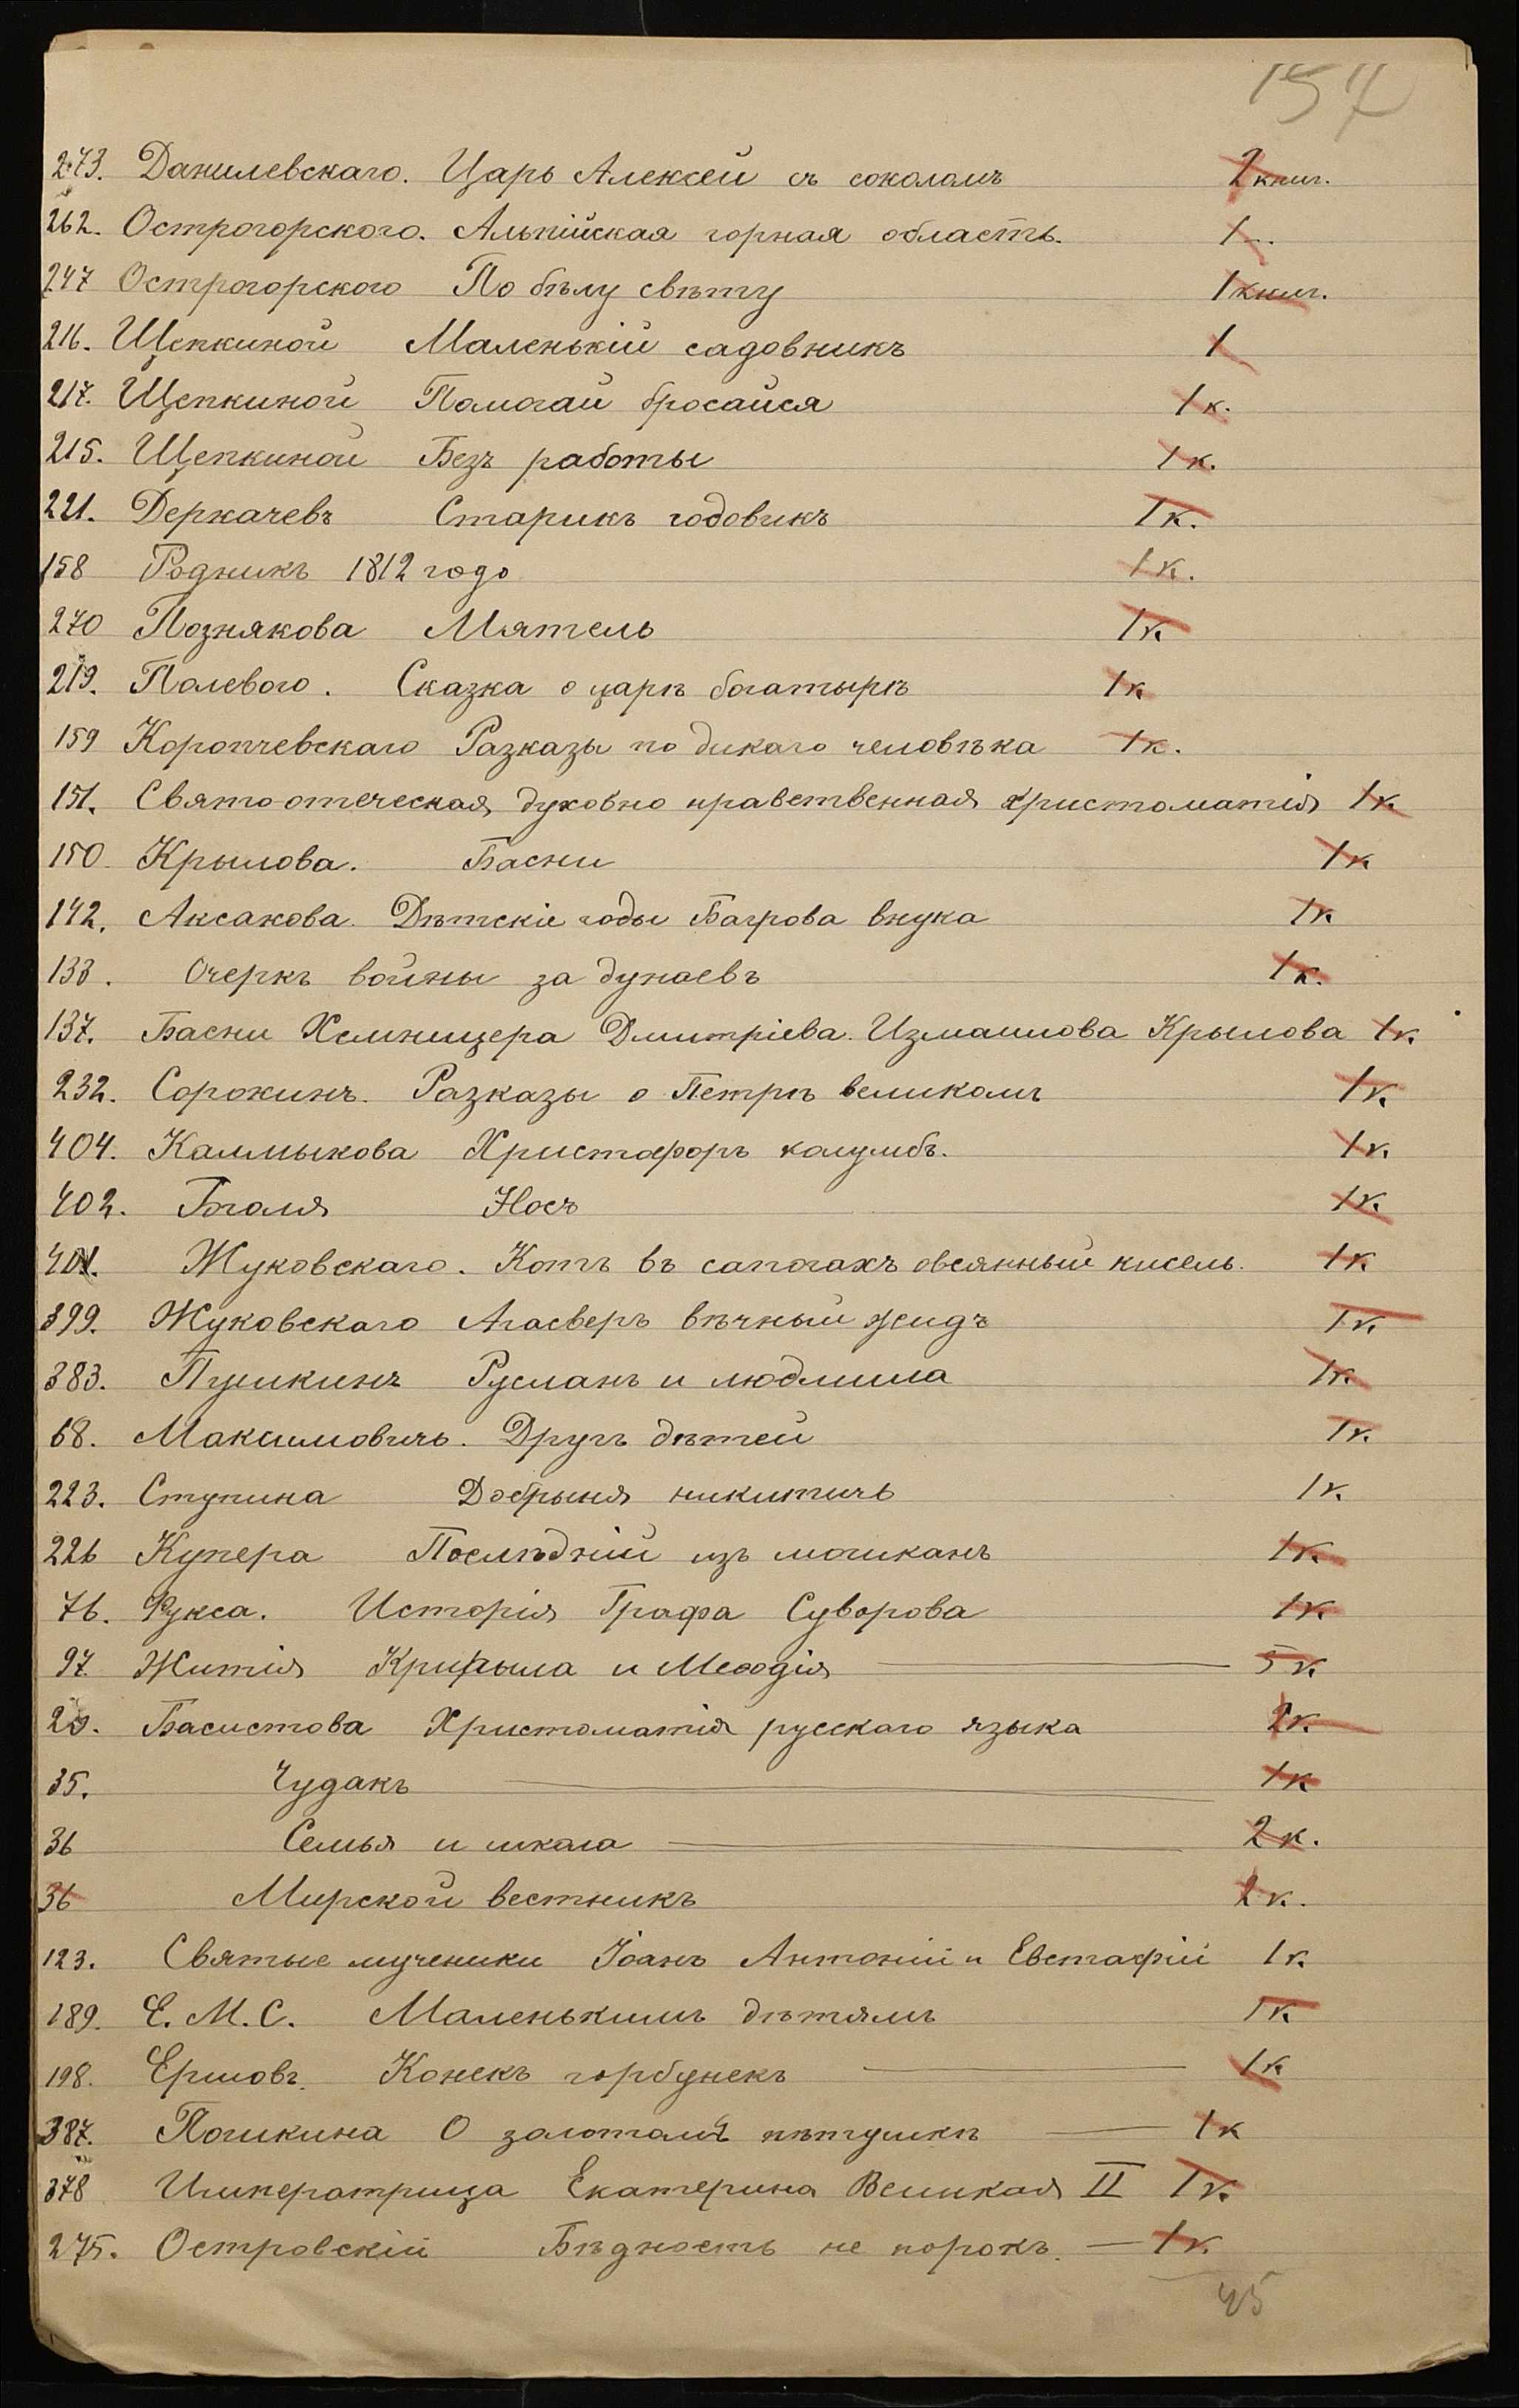 157
273. Данилевскаго. Царь Алексей съ соколомъ 2 книг.
262. Острогорского. Альпійская горная область. 1 —.
247 Острогорского По бѣлу свѣту 1 книг.
216. Щепкиной Маленькій садовникъ 1
217. Щепкиной Помогай бросайся 1 к.
215. Щепкиной Безъ работы 1 к.
221. Деркачевъ Старикъ годовикъ 1 к.
158 Родникъ 1812 годо 1 к.
270 Познякова Мятель 1 к.
219. Полевого. Сказка о царѣ богатырѣ 1 к
159 Коропчевскаго Разказы по дикаго человѣка 1 к.
151. Свято-отеческая духовно нравственная христоматія 1 к.
150. Крылова. Басни 1 к
142. Аксакова. Дѣтскіе годы Багрова внука 1 к
133. Очеркъ войны за дунаевъ 1 к.
137. Басни Хемницера Дмитріева. Измаилова Крылова 1 к.
232. Сорокинъ. Разказы о Петрѣ великомъ 1 к.
404. Калмыкова Христофоръ колумбъ. 1 к.
402. Гоголя Носъ 1 к.
401. Жуковскаго. Котъ въ сапогахъ овсянный кисель. 1 к
399. Жуковскаго Агасверъ вѣчный жидъ 1 к.
383. Пушкинъ Русланъ и людмила 1 к.
68. Максимовичь. Другъ дѣтей 1 к.
223. Ступина Добрыня никитичь 1 к.
226 Купера Послѣдній изъ могиканъ 1 к.
76. Фукса. Исторія Графа Суворова 1 к.
97. Житія Крирыла и Мефодія — 5 к.
20. Басистова Христоматія русскаго языка 2 к.
35. Чудакъ — 1 к
36 Семья и школа — 2 к.
36 Мирской вестникъ 2 к.
123. Святые мученики Іоанъ Антоній и Евстафій 1 к.
189. Е. М. С. Маленькимъ дѣтямъ 1 к.
198. Ершовъ. Конекъ горбунекъ — 1 к
387. Пошкина О золотомъ пѣтушкѣ — 1 к
378 Императрица Екатерина Великая II 1 к.
275. Островскій Бѣдность не порокъ. — 1 к.
45